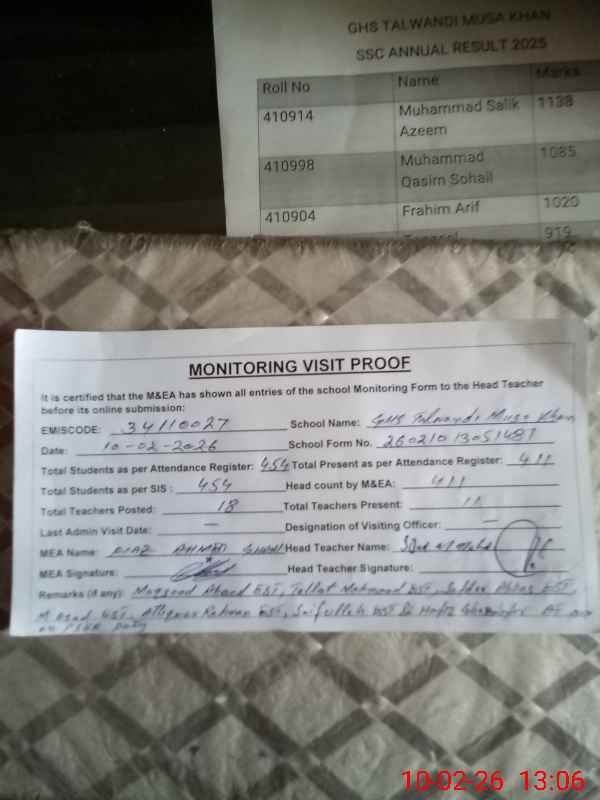 GHS TALWANDI MUSA KHAN
SSC ANNUAL RESULT 2025
Roll No Name Marks
410914 Muhammad Salik Azeem 1138
410998 Muhammad Qasim Sohail 1085
410904 Frahim Arif 1020
919
MONITORING VISIT PROOF
It is certified that the M&EA has shown all entries of the school Monitoring Form to the Head Teacher
before its online submission:
EMISCODE: 34110027 School Name: GHS Talwandi Musa Khan
Date: 10-02-2026 School Form No.
Total Students as per Attendance Register: 454 Total Present as per Attendance Register: 411
Total Students as per SIS : 454 Head count by M&EA: 411
Total Teachers Posted: 18 Total Teachers Present: 11
Last Admin Visit Date: — Designation of Visiting Officer: —
MEA Name: AHMED Head Teacher Name:
MEA Signature: Head Teacher Signature:
Remarks (if any): Maqsood Ahmed EST, Tallat Mehmood EST, Safdar Abbas EST,
M Asad EST, Attiqur Rehman EST, Saifullah EST & Hafiz
Duty
10-02-26 13:06